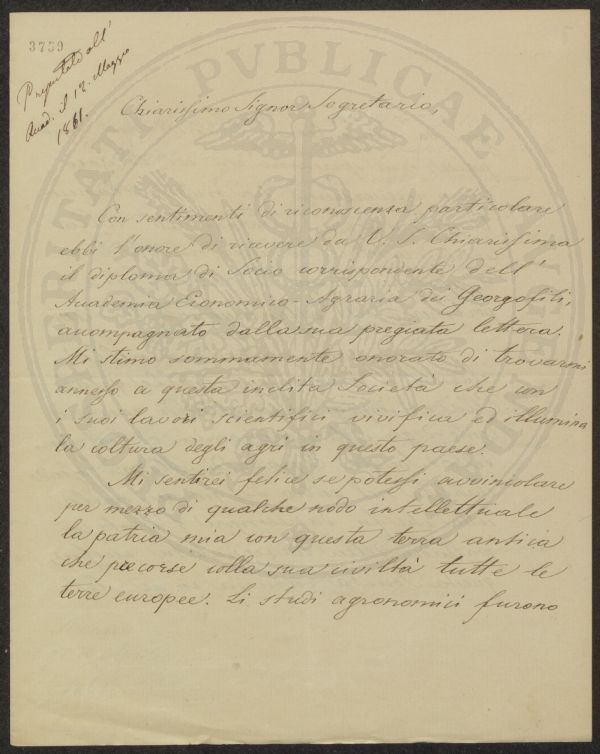 3759
Presentata all'
Acad. il 12. Maggio
1861.
Chiarissimo Signor Segretario,
Con sentimenti di riconoscenza particolare
ebbi l'onore di ricevere da V. S. Chiarissima
il diploma di Socio corrispondente dell'
Accademia Economico-Agraria dei Georgofili,
accompagnato dalla sua pregiata lettera.
Mi stimo sommamente onorato di trovarmi
annesso a questa inclita Società che con
i suoi lavori scientifici vivifica ed illumina
la coltura degli agri in questo paese.
Mi sentirei felice se potessi avvincolare
per mezzo di qualche nodo intellettuale
la patria mia con questa terra antica
che precorse colla sua civiltà tutte le
terre europee. Li studi agronomici furono
PROSPERITATI PVBLICAE